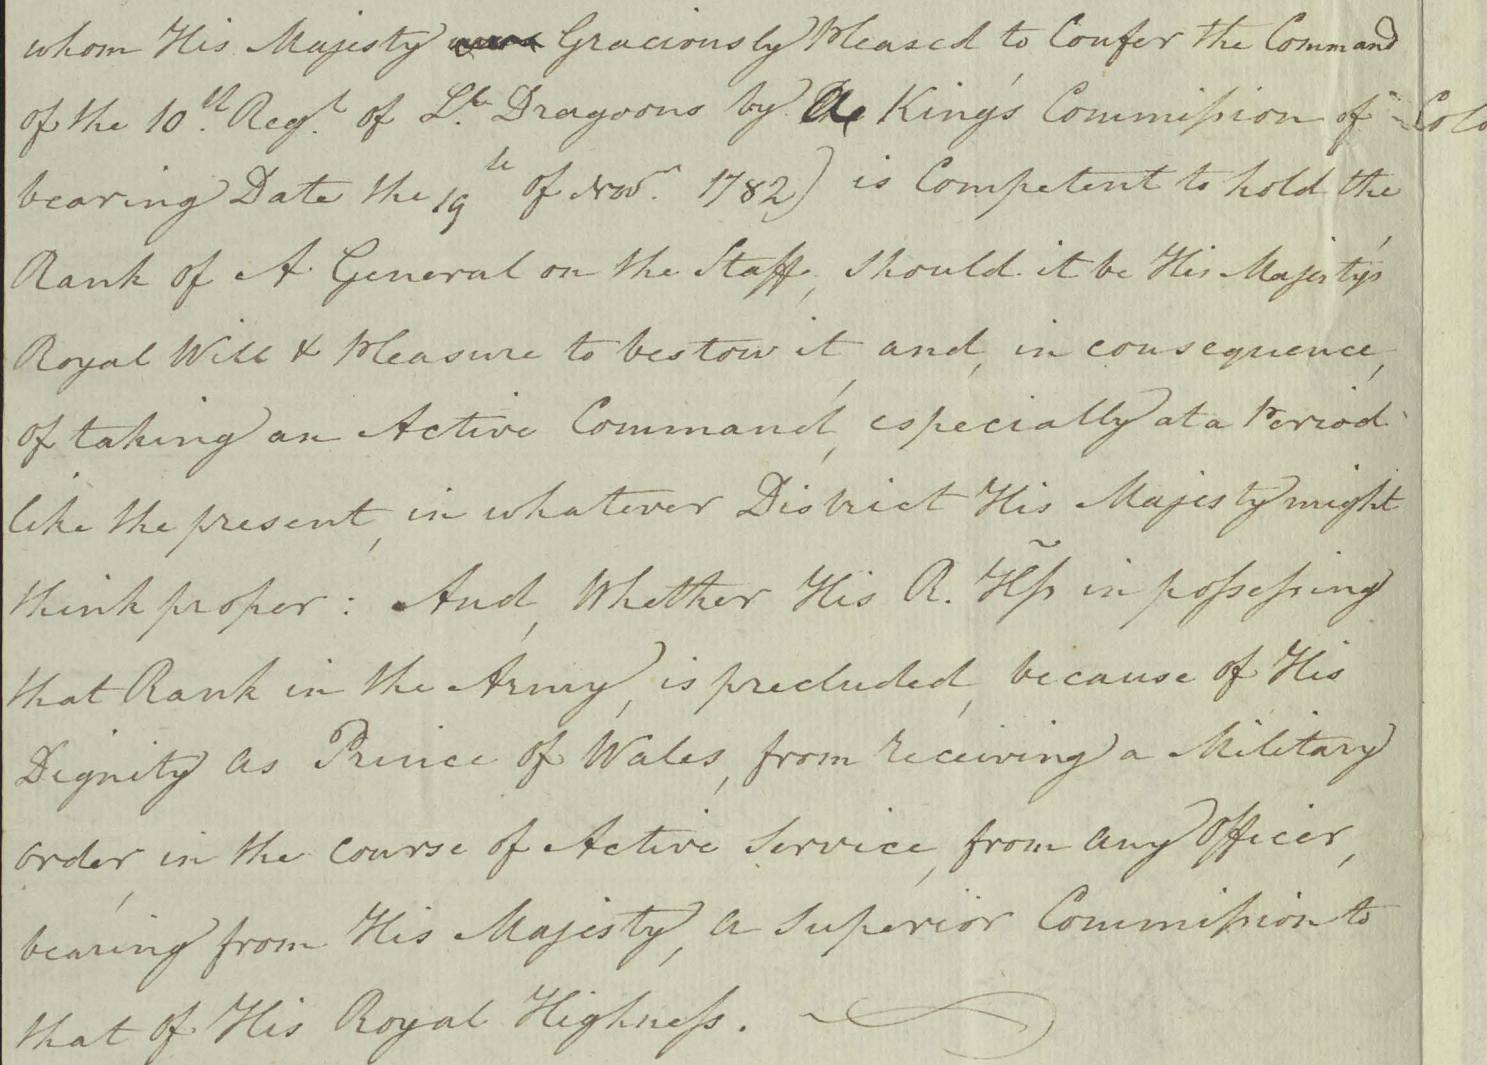 whom His Majesty was Graciously Pleased to Confer the Command
of the 10th. Regt. of Lt. Dragoons by the King's Commission of Colo
bearing Date the 19th of Novr. 1782) is Competent to hold the
Rank of A General on the Staff, should it be His Majesty's
Royal Will & Pleasure to bestow it, and, in consequence,
of taking an Active Command, especially at a Period
like the present, in whatever District His Majesty might
think proper: And, Whether His R. Hss in possessing
that Rank in the Army, is precluded, because of His
Dignity as Prince of Wales, from receiving a Military
order, in the course of Active Service, from any Officer,
bearing from His Majesty, a Superior Commission to
that of His Royal Highness.